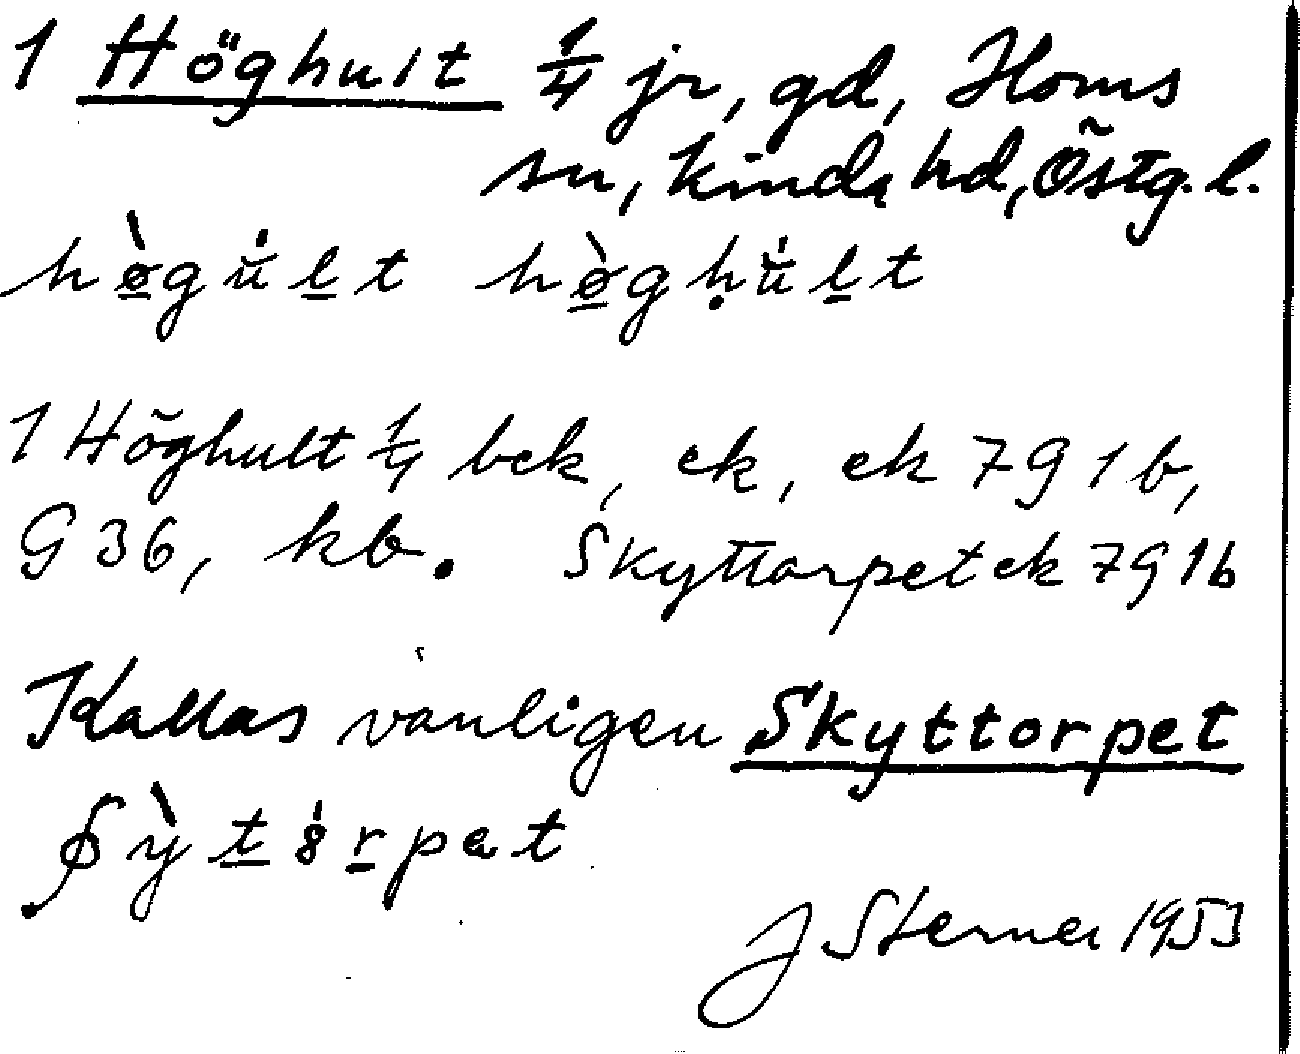 1 Höghult 1/4 jr, gd, Horns
sn, Kinda hd, Östg. l.
hø̀gu̇lt hø̀gḥu̇lt
1 Höghult 1/4 bek, ek, ek 79 1b,
G 36, kb. Skyttorpet ek 79 1b
Kallas vanligen Skyttorpet
ʃỳt8rpət
J Sterner 1953